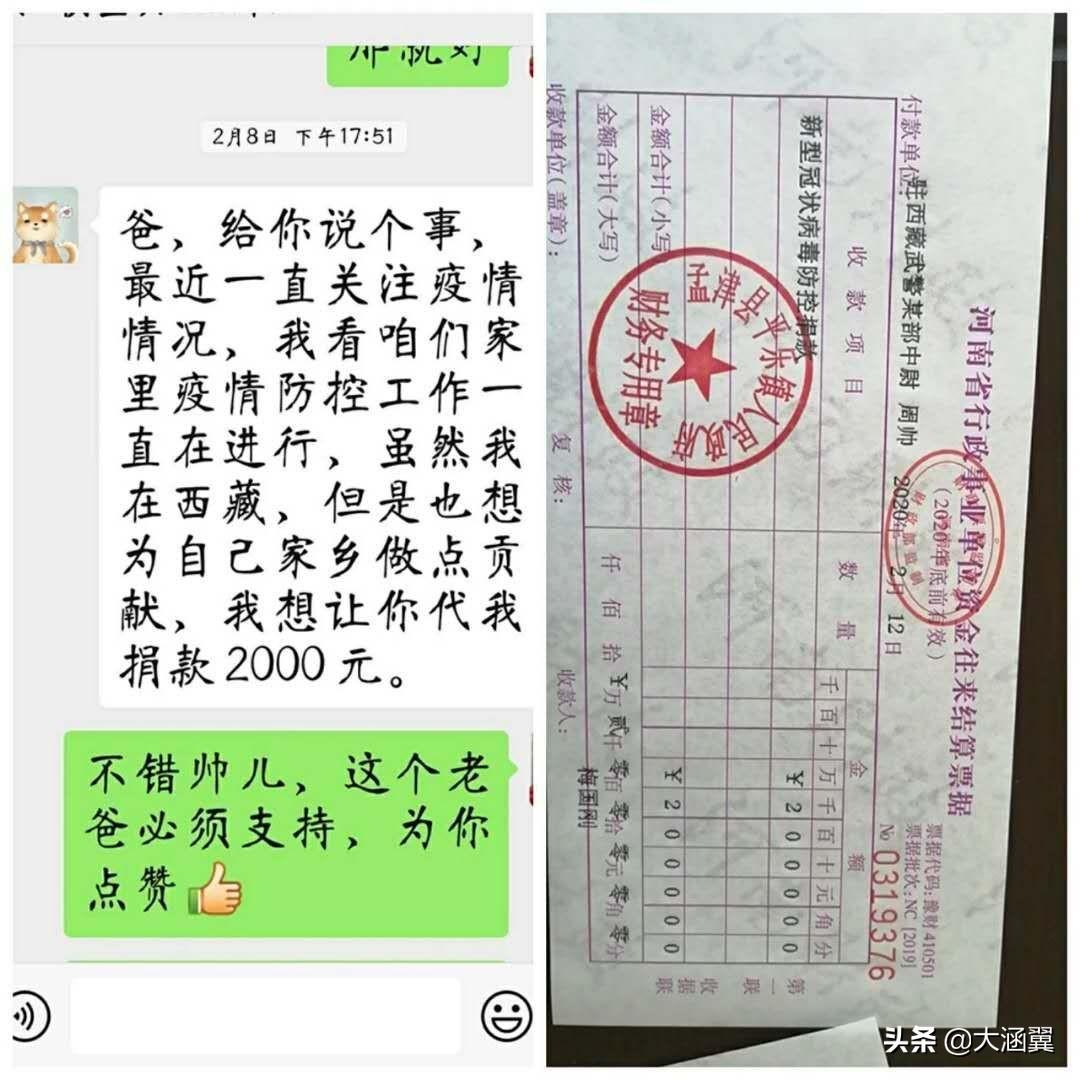 那就好
2月8日 下午17:51
爸，给你说个事，
最近一直关注疫情
情况，我看咱们家
里疫情防控工作一
直在进行，虽然我
在西藏，但是也想
为自己家乡做点贡
献，我想让你代我
捐款2000元。
不错帅儿，这个老
爸必须支持，为你
点赞👍
河南省行政事业单位资金往来结算票据
(2020年底前有效)
票据代码:豫财410501
票据批次:NC[2019]
№ 0319376
付款单位:驻西藏武警某部中尉 周帅 2020年 2月 12日
收款项目 数量 金额
千百十万千百十元角分
新型冠状病毒防控捐款 ¥200000
金额合计(小写) ¥200000
金额合计(大写) 仟佰拾¥万贰仟零佰零拾零元零角零分
收款单位(盖章): 复核: 收款人: 梅国刚
第二联 收据联
孟津县平乐镇人民政府
财务专用章
头条 @大涵翼